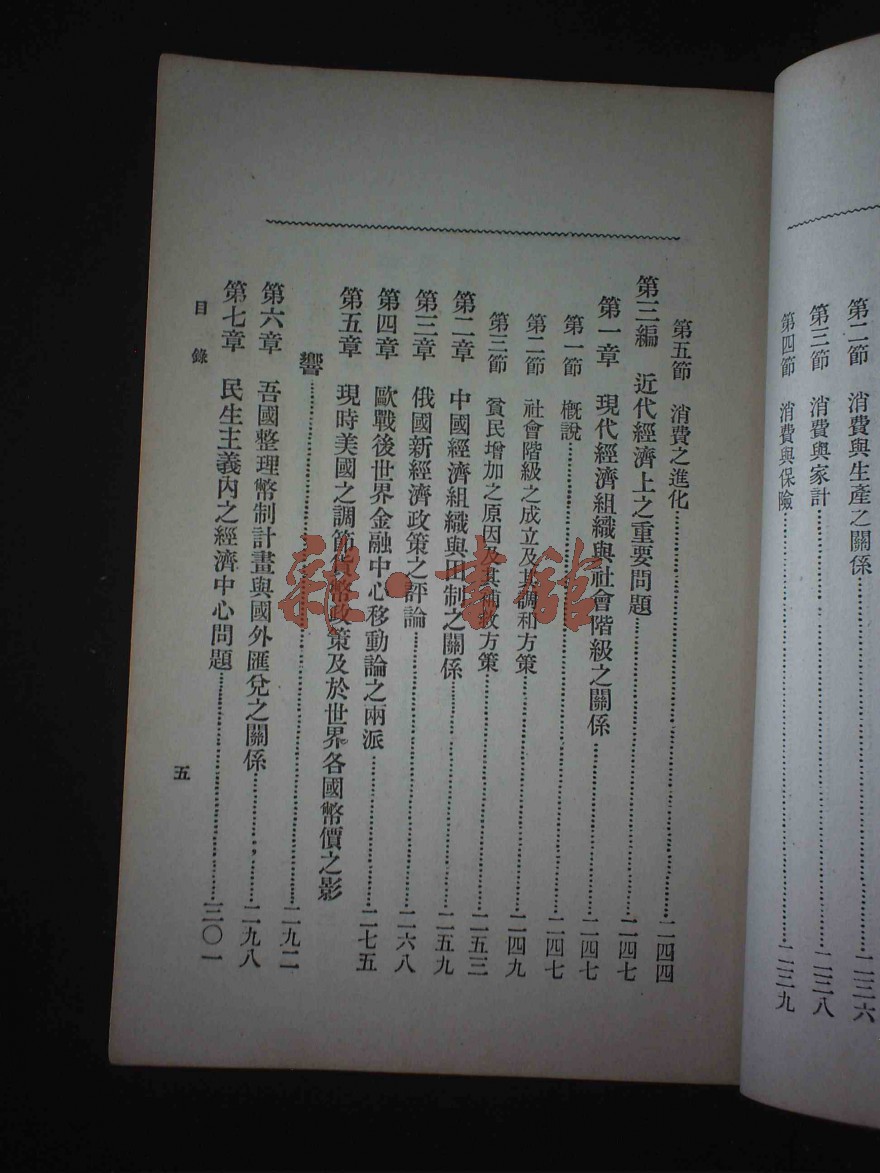 第二節　消費與生產之關係……二三六
第三節　消費與家計……二三八
第四節　消費與保險……二三九
第五節　消費之進化……二四四
第三編　近代經濟上之重要問題……二四七
第一章　現代經濟組織與社會階級之關係……二四七
第一節　概說……二四七
第二節　社會階級之成立及其調和方策……二四九
第三節　貧民增加之原因及其補救方策……二五三
第二章　中國經濟組織與田制之關係……二五九
第三章　俄國新經濟政策之評論……二六八
第四章　歐戰後世界金融中心移動論之兩派……二七五
第五章　現時美國之調節貨幣政策及於世界各國幣價之影
響……二九二
第六章　吾國整理幣制計畫與國外匯兌之關係……二九八
第七章　民生主義內之經濟中心問題……三〇一
目錄
五
雜·書館